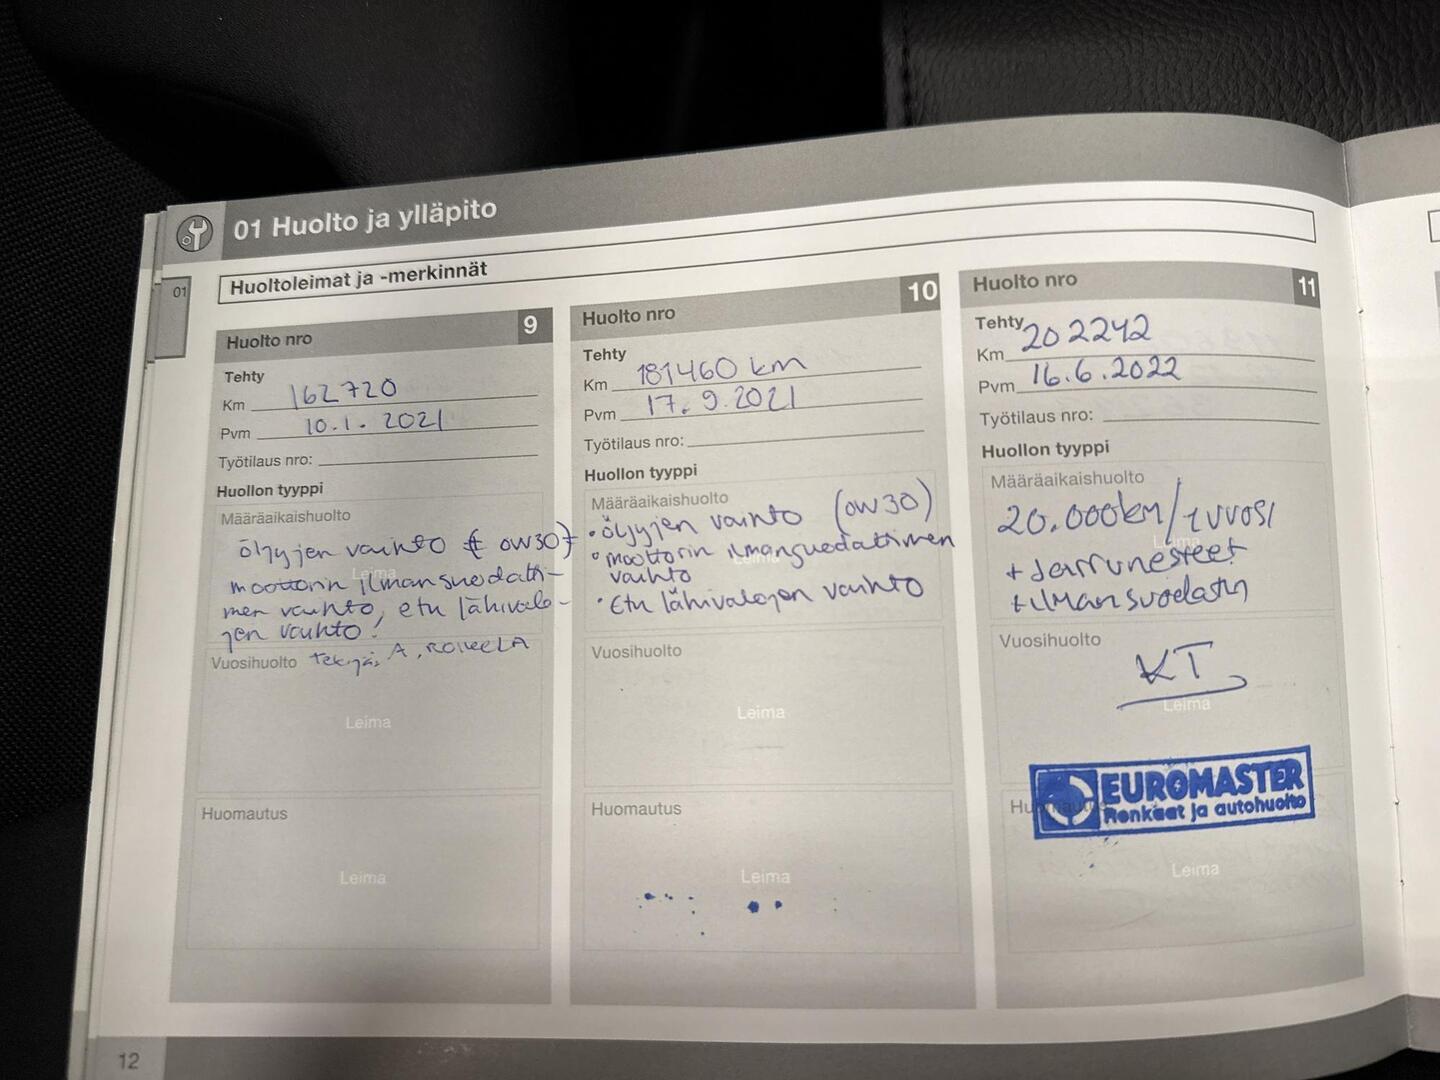 01 Huolto ja ylläpito
01
Huoltoleimat ja -merkinnät
Huolto nro 9
Tehty
Km 162720
Pvm 10.1. 2021
Työtilaus nro:
Huollon tyyppi
Määräaikaishuolto
öljyjen vaihto (0W30)
moottorin ilmansuodatti-
men vaihto, etu lähivalo-
jen vaihto!
Leima
Vuosihuolto
Tekijä, A.
Leima
Huomautus
Leima
Huolto nro 10
Tehty
Km 181460 km
Pvm 17.9.2021
Työtilaus nro:
Huollon tyyppi
Määräaikaishuolto
• öljyjen vaihto (0W30)
• moottorin ilmansuodattimen
vaihto
Leima
• Etu lähivalojen vaihto
Vuosihuolto
Leima
Huomautus
Leima
Huolto nro 11
Tehty
Km 202242
Pvm 16.6.2022
Työtilaus nro:
Huollon tyyppi
Määräaikaishuolto
20.000km/1vuosi
Leima
+ Jarrunesteet
+ ilmansuodatin
Vuosihuolto
KT
Leima
EUROMASTER
Renkaat ja autohuolto
Huomautus
Leima
12